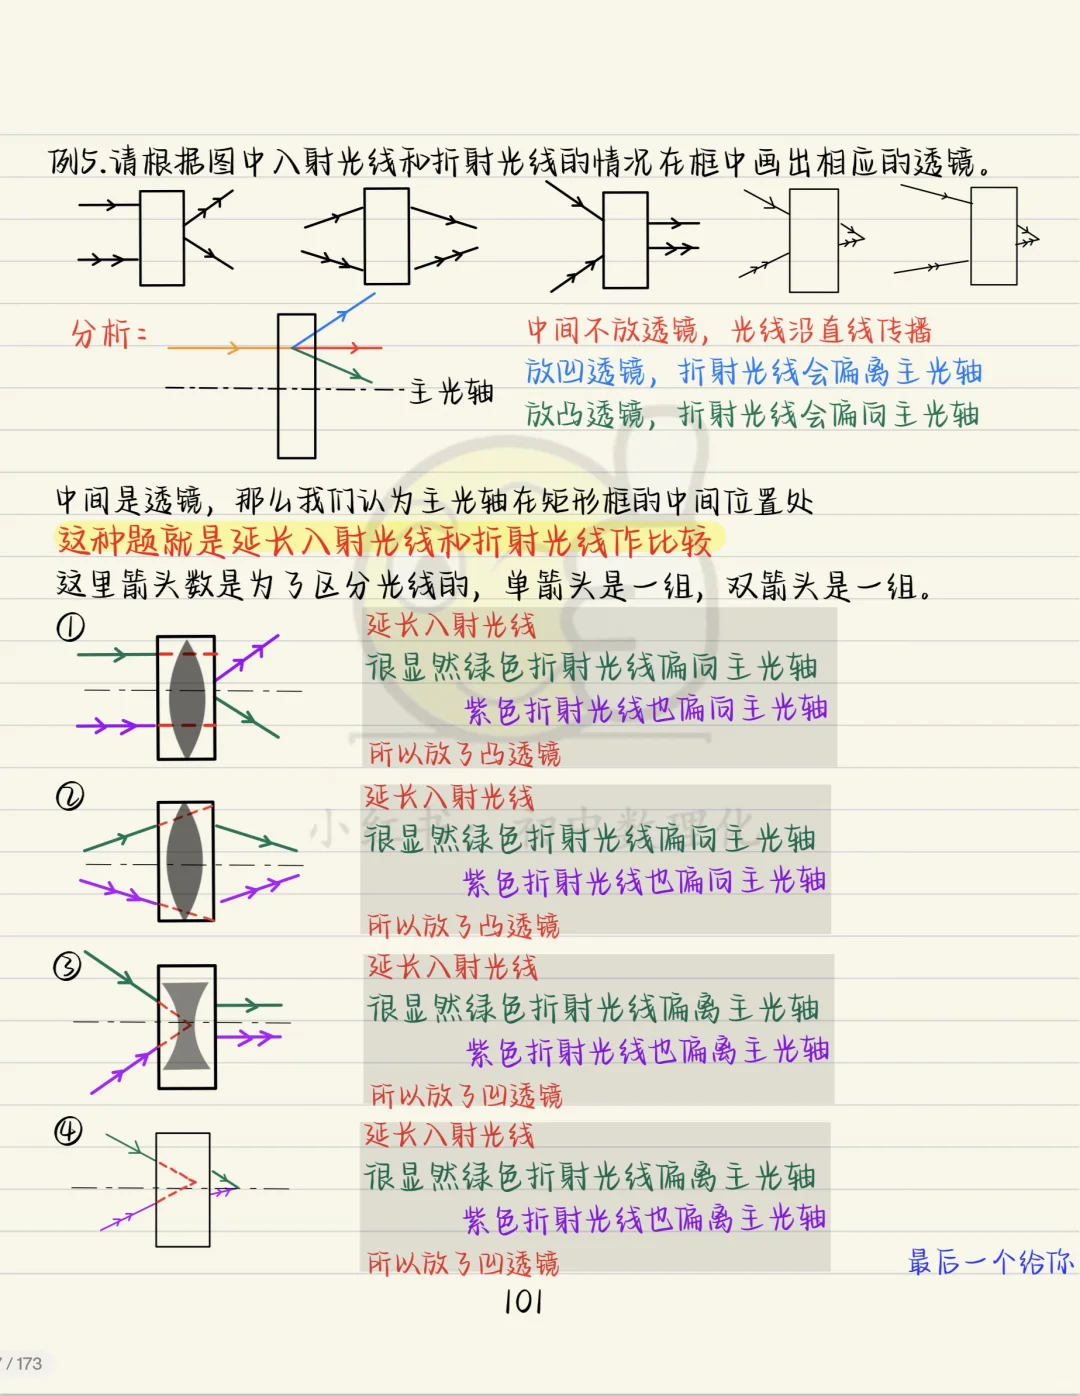 例5.请根据图中入射光线和折射光线的情况在框中画出相应的透镜。
分析：
主光轴
中间不放透镜，光线沿直线传播
放凹透镜，折射光线会偏离主光轴
放凸透镜，折射光线会偏向主光轴
中间是透镜，那么我们认为主光轴在矩形框的中间位置处
这种题就是延长入射光线和折射光线作比较
这里箭头数是为了区分光线的，单箭头是一组，双箭头是一组。
①
延长入射光线
很显然绿色折射光线偏向主光轴
紫色折射光线也偏向主光轴
所以放了凸透镜
②
延长入射光线
很显然绿色折射光线偏向主光轴
紫色折射光线也偏向主光轴
所以放了凸透镜
小红书：初中数理化
③
延长入射光线
很显然绿色折射光线偏离主光轴
紫色折射光线也偏离主光轴
所以放了凹透镜
④
延长入射光线
很显然绿色折射光线偏离主光轴
紫色折射光线也偏离主光轴
所以放了凹透镜
最后一个给你
101
/ 173